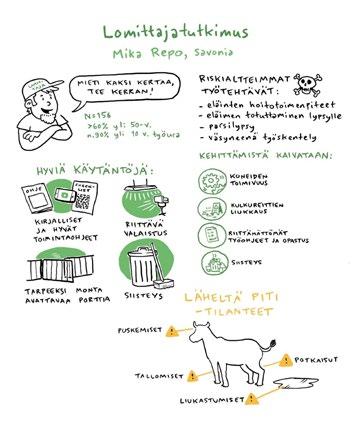 Lomittajatutkimus
Mika Repo, Savonia
MIETI KAKSI KERTAA,
TEE KERRAN!
N=156
>60% yli 50-v.
n.90% yli 10 v. työura
RISKIALTTEIMMAT
TYÖTEHTÄVÄT:
- eläinten hoitotoimenpiteet
- eläimen totuttaminen lypsylle
- parsilypsy
- väsyneenä työskentely
HYVIÄ KÄYTÄNTÖJÄ:
OHJE
KIRJALLISET
JA HYVÄT
TOIMINTAOHJEET
RIITTÄVÄ
VALAISTUS
TARPEEKSI MONTA
AVATTAVAA PORTTIA
SIISTEYS
KEHITTÄMISTÄ KAIVATAAN:
KONEIDEN
TOIMIVUUS
KULKUREITTIEN
LIUKKAUS
RIITTÄMÄTTÖMÄT
TYÖOHJEET JA OPASTUS
SIISTEYS
LÄHELTÄ PITI
-TILANTEET
PUSKEMISET
POTKAISUT
TALLOMISET
LIUKASTUMISET